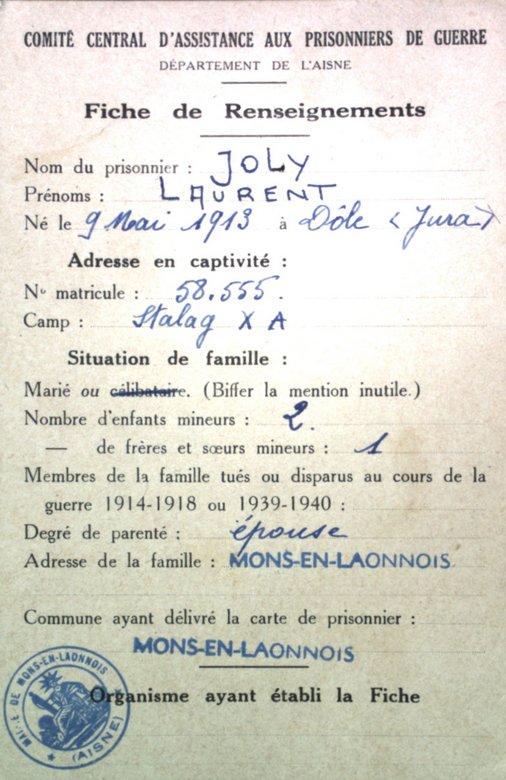 COMITÉ CENTRAL D'ASSISTANCE AUX PRISONNIERS DE GUERRE
DÉPARTEMENT DE L'AISNE
Fiche de Renseignements
Nom du prisonnier : JOLY
Prénoms : LAURENT
Né le 9 Mai 1913 à Dôle (Jura)
Adresse en captivité :
No matricule : 58.555.
Camp : Stalag X A
Situation de famille :
Marié ou célibataire. (Biffer la mention inutile.)
Nombre d'enfants mineurs : 2.
— de frères et sœurs mineurs : 1
Membres de la famille tués ou disparus au cours de la
guerre 1914-1918 ou 1939-1940 :
Degré de parenté : épouse
Adresse de la famille : MONS-EN-LAONNOIS
Commune ayant délivré la carte de prisonnier :
MONS-EN-LAONNOIS
Organisme ayant établi la Fiche
MAIRIE DE MONS-EN-LAONNOIS
(AISNE)